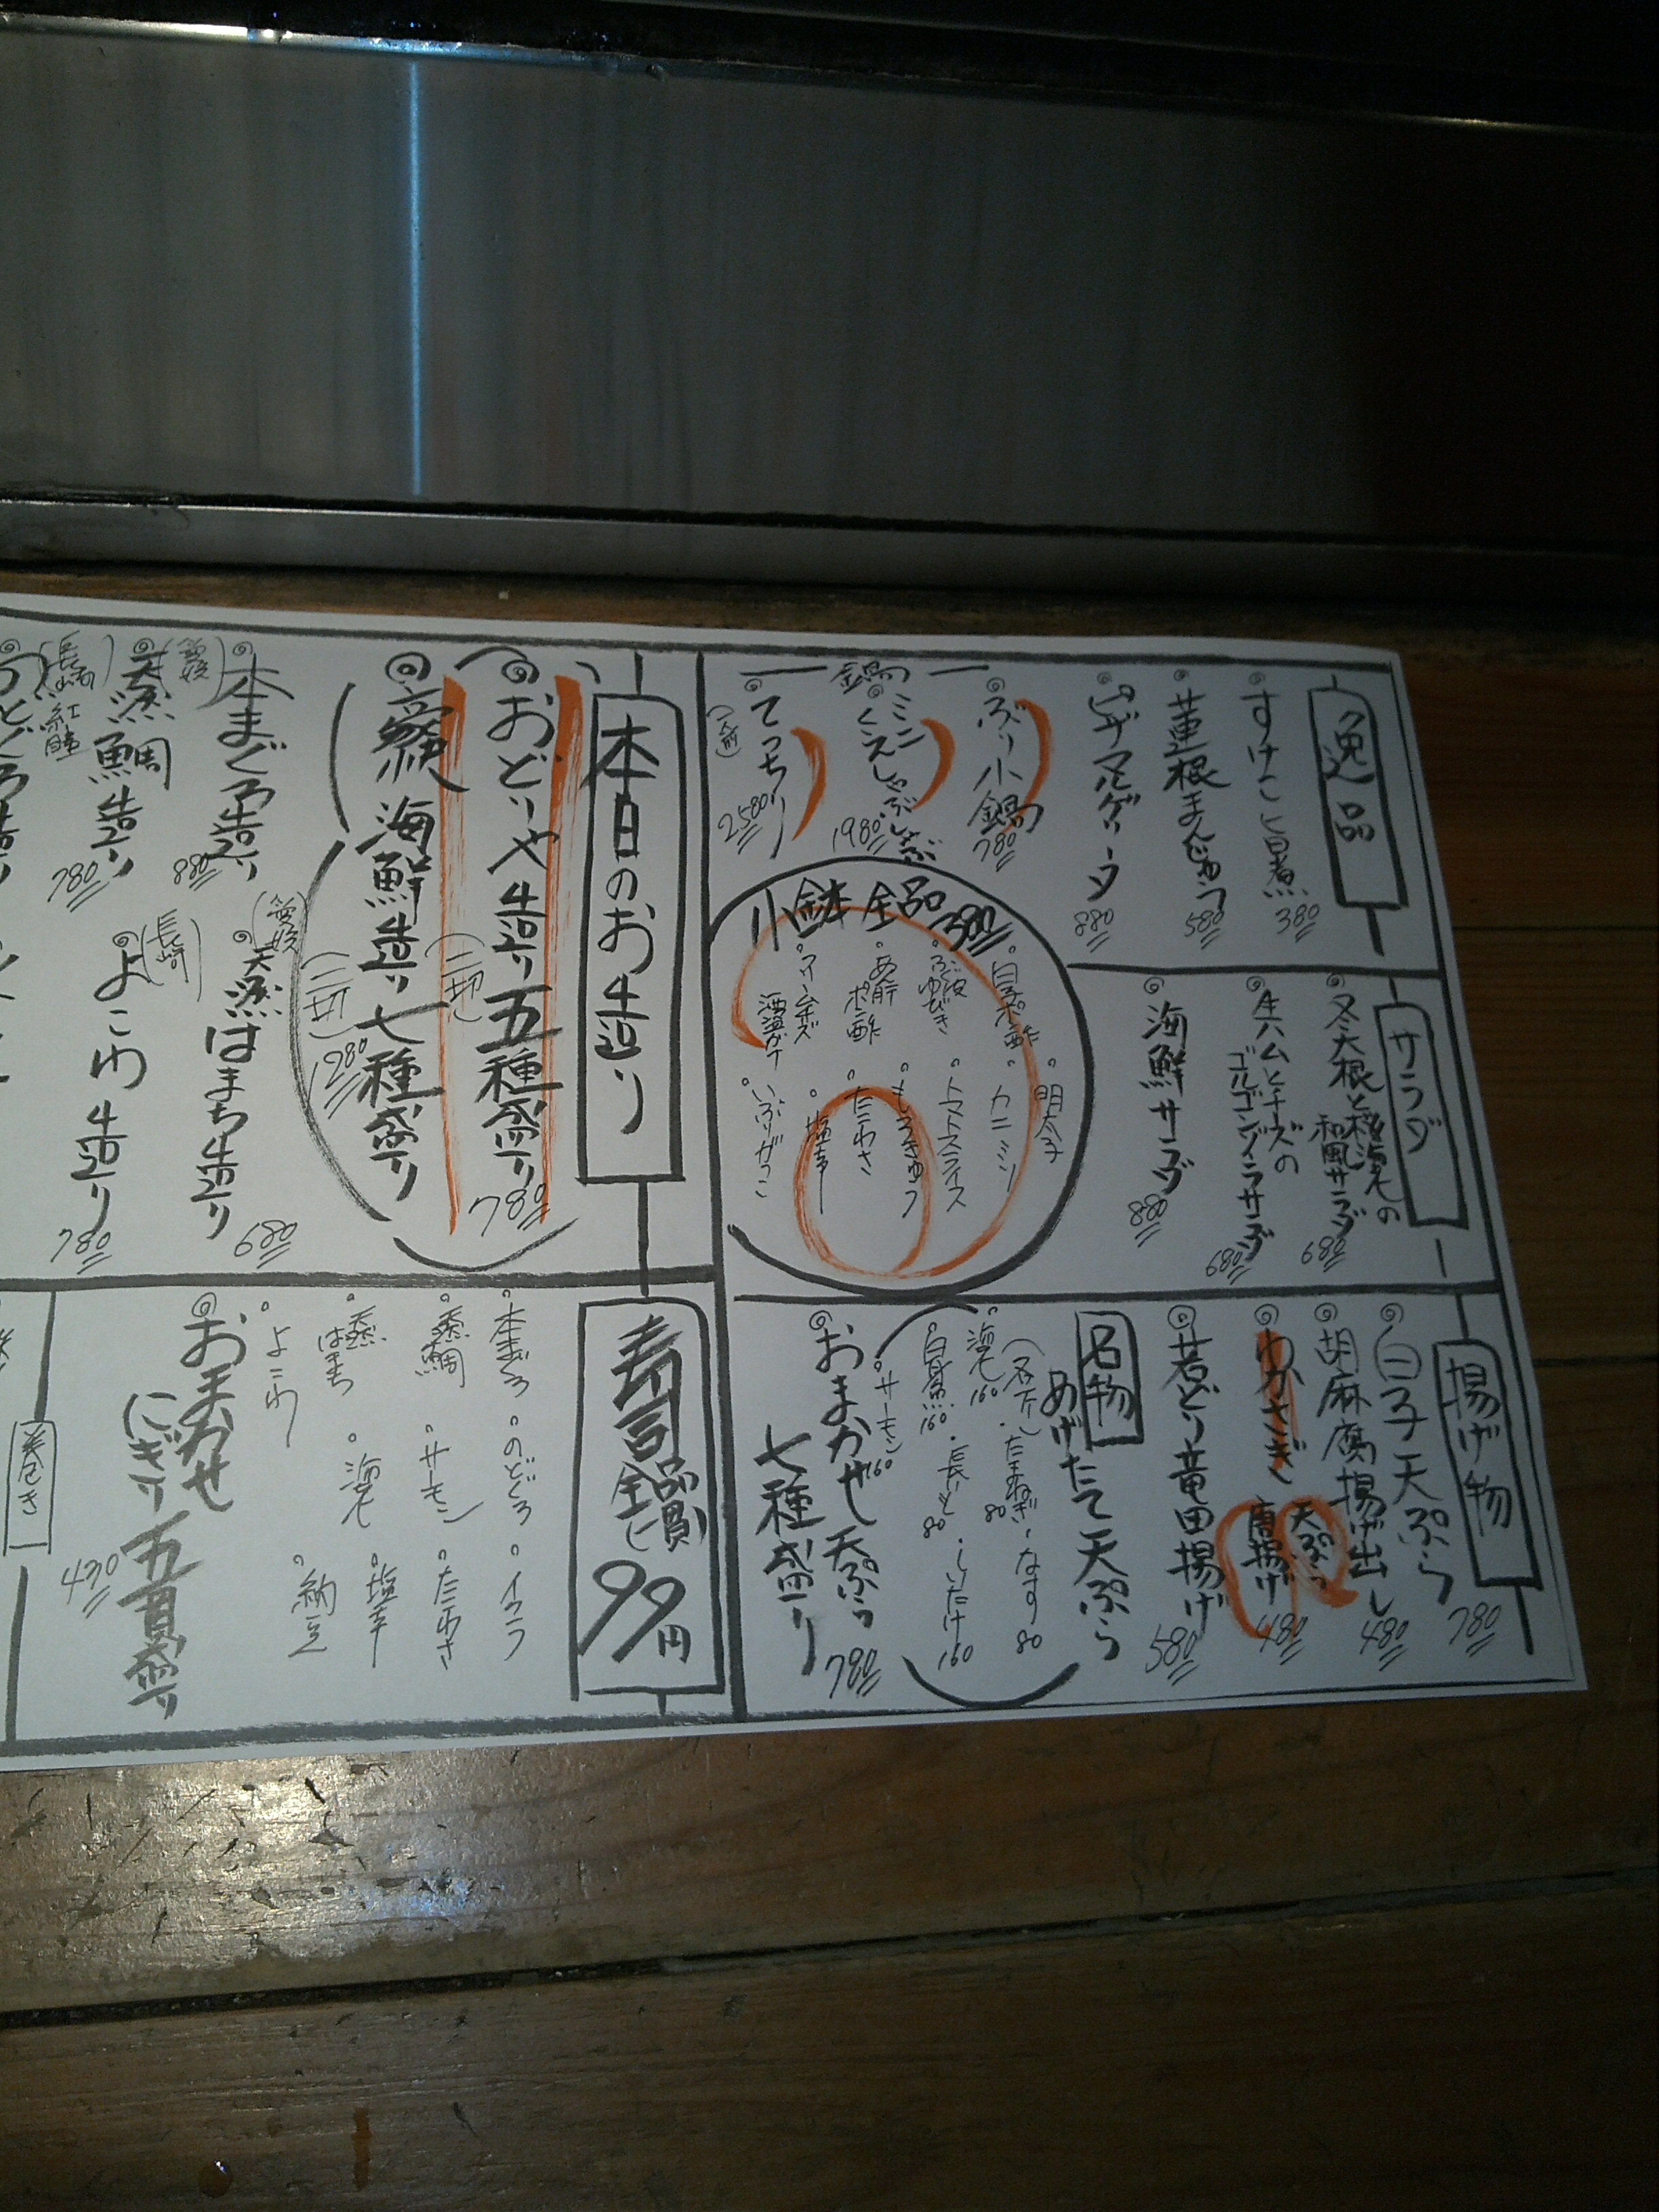 逸品
すけこ旨煮
380
蓮根まんじゅう
580
ピザマルゲリータ
880
鍋
ぶり小鍋
780
ミニくえしゃぶしゃぶ
1980
てっちり
(一人前)
2580
サラダ
冬大根と桜海老の
和風サラダ
680
生ハムとチーズの
ゴルゴンゾイラサラダ
680
海鮮サラダ
880
小鉢全品380
白子ポン酢
ふぐ皮ゆびき
あん肝ポン酢
クリームチーズ
酒盗がけ
明太子
カニミソ
トマトスライス
もろきゅう
たこわさ
塩辛
いぶりがっこ
揚げ物
白子天ぷら
780
胡麻腐揚げ出し
480
わかさぎ
天ぷら
唐揚げ
480
若どり竜田揚げ
580
名物
あげたて天ぷら
・たまねぎ80
・なす80
海老160
・長いも80
・しいたけ160
白身魚160
サーモン160
おまかせ天ぷら
七種盛り
780
本日のお造り
おどりや造り五種盛り
(二切)
780
海鮮造り七種盛り
(二切)
1280
本まぐろ造り
880
(愛媛)
天然鯛造り
780
(愛媛)
天然はまち造り
680
(長崎)
よこわ造り
780
(長崎)
寿司全品一貫
99円
本まぐろ
天然鯛
天然はまち
よこわ
のどぐろ
サーモン
海老
イクラ
たこわさ
塩辛
納豆
おまかせ
にぎり五貫盛り
430
巻き